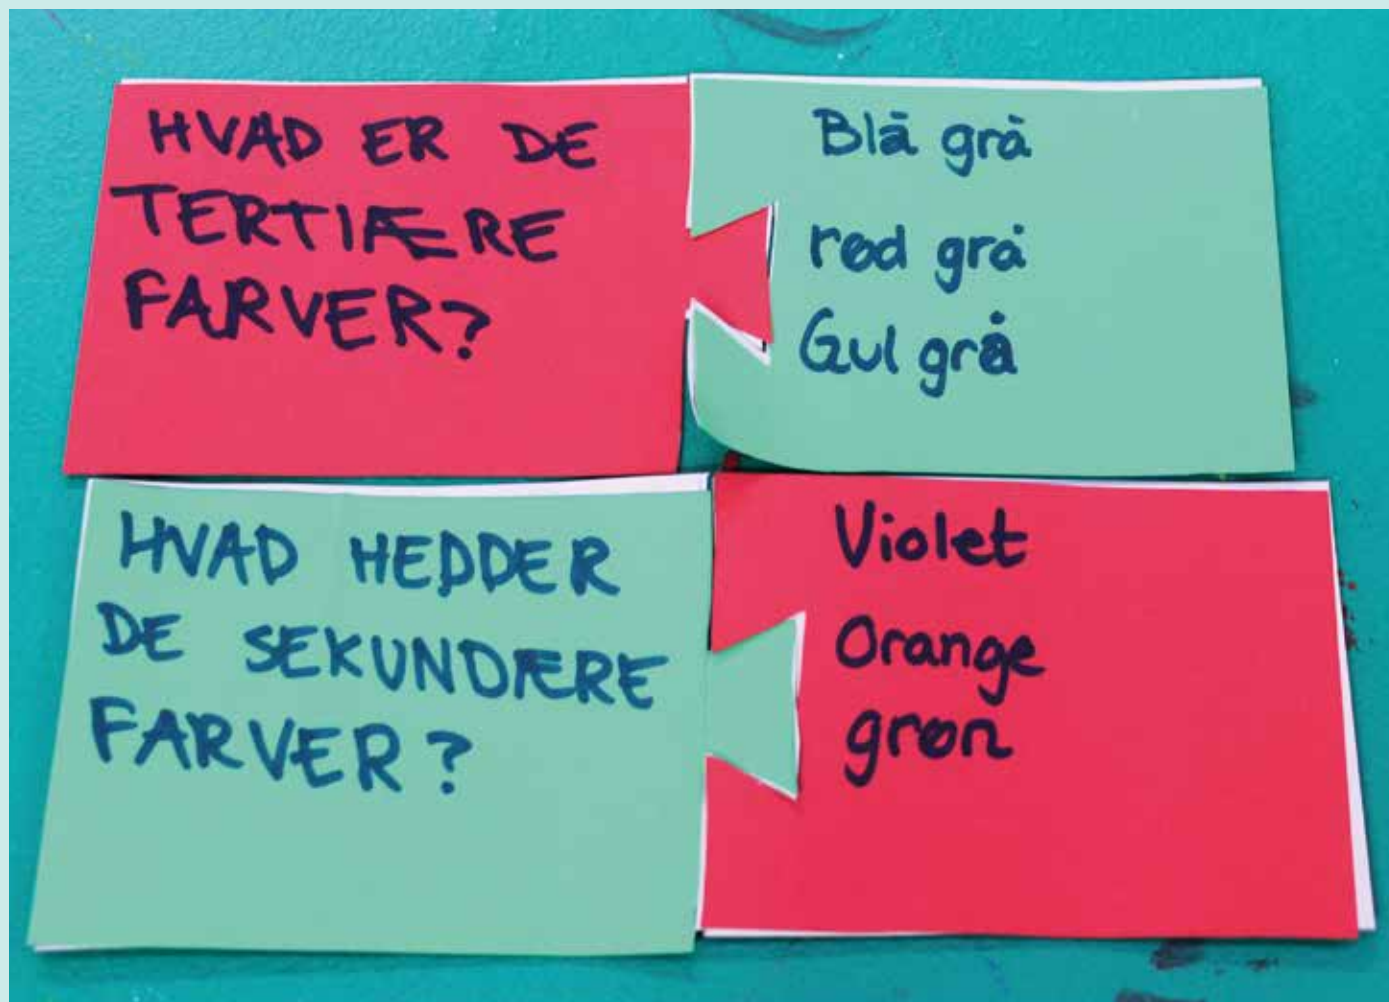 HVAD ER DE
TERTIÆRE
FARVER?
Blå grå
rød grå
Gul grå
HVAD HEDDER
DE SEKUNDÆRE
FARVER?
Violet
Orange
grøn